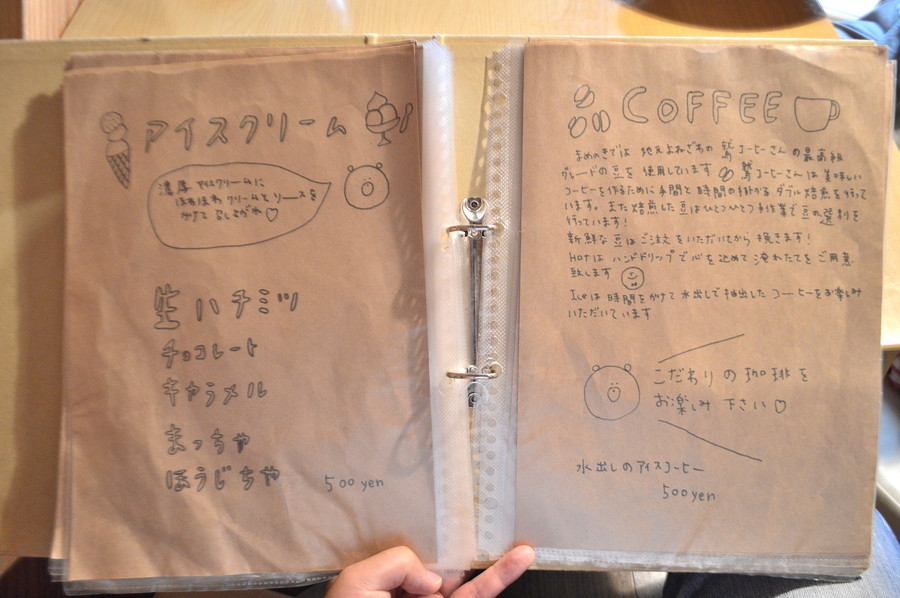 アイスクリーム
濃厚アイスクリームに
ほわほわクリームとソースを
かけて召し上がれ♡
生ハチミツ
チョコレート
キャラメル
まっちゃ
ほうじちゃ
500yen
COFFEE
まめのきでは 地元よねざわの 鷲コーヒーさんの最高級
グレードの豆を使用しています 鷲コーヒーさんは美味しい
コーヒーを作るために手間と時間の掛かるダブル焙煎を行って
います。また焙煎した豆はひとつひとつ手作業で豆の選別を
行っています!
新鮮な豆はご注文をいただいてから挽きます!
Hotはハンドドリップで心を込めて淹れたてをご用意
致します
Iceは時間をかけて水出しで抽出したコーヒーをお楽しみ
いただいています
こだわりの珈琲を
お楽しみ下さい♡
水出しのアイスコーヒー
500yen